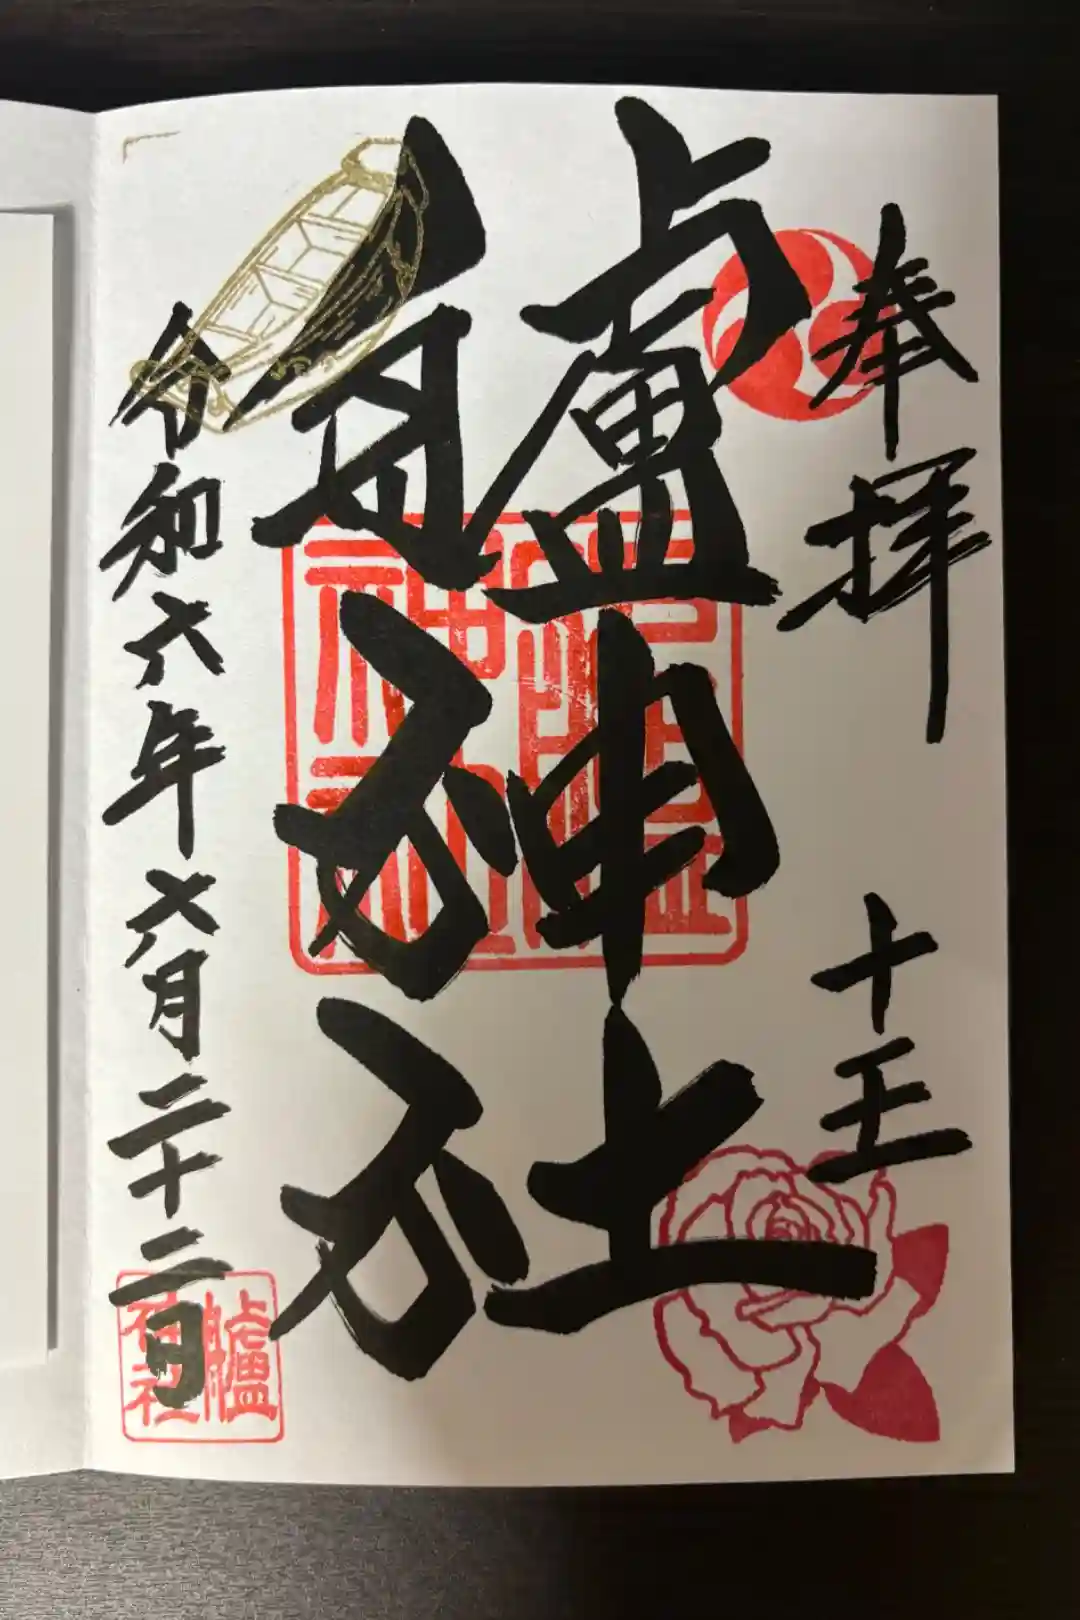 奉拝 十王
艫神社
令和六年六月二十二日
艫神社
艫神社